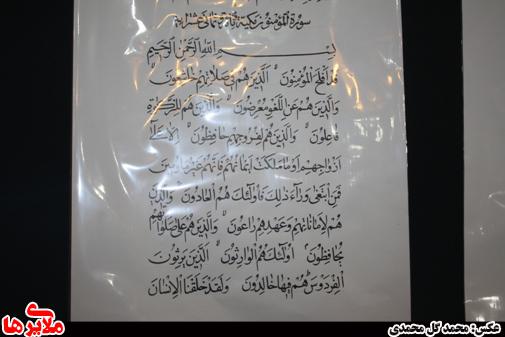 سورة المؤمنون مكية
بسم الله الرحمن الرحيم
قد افلح المؤمنون الذين هم فى صلاتهم خاشعون
والذين هم عن اللغو معرضون والذين هم للزكوة
فاعلون والذين هم لفروجهم حافظون الا على
ازواجهم او ما ملكت ايمانهم فانهم غير ملومين
فمن ابتغى وراء ذلك فاولئك هم العادون والذين
هم لاماناتهم وعهدهم راعون والذين هم على صلواتهم
يحافظون اولئك هم الوارثون الذين يرثون
الفردوس هم فيها خالدون ولقد خلقنا الانسان
ملایری ها
عکس: محمد گل محمدی